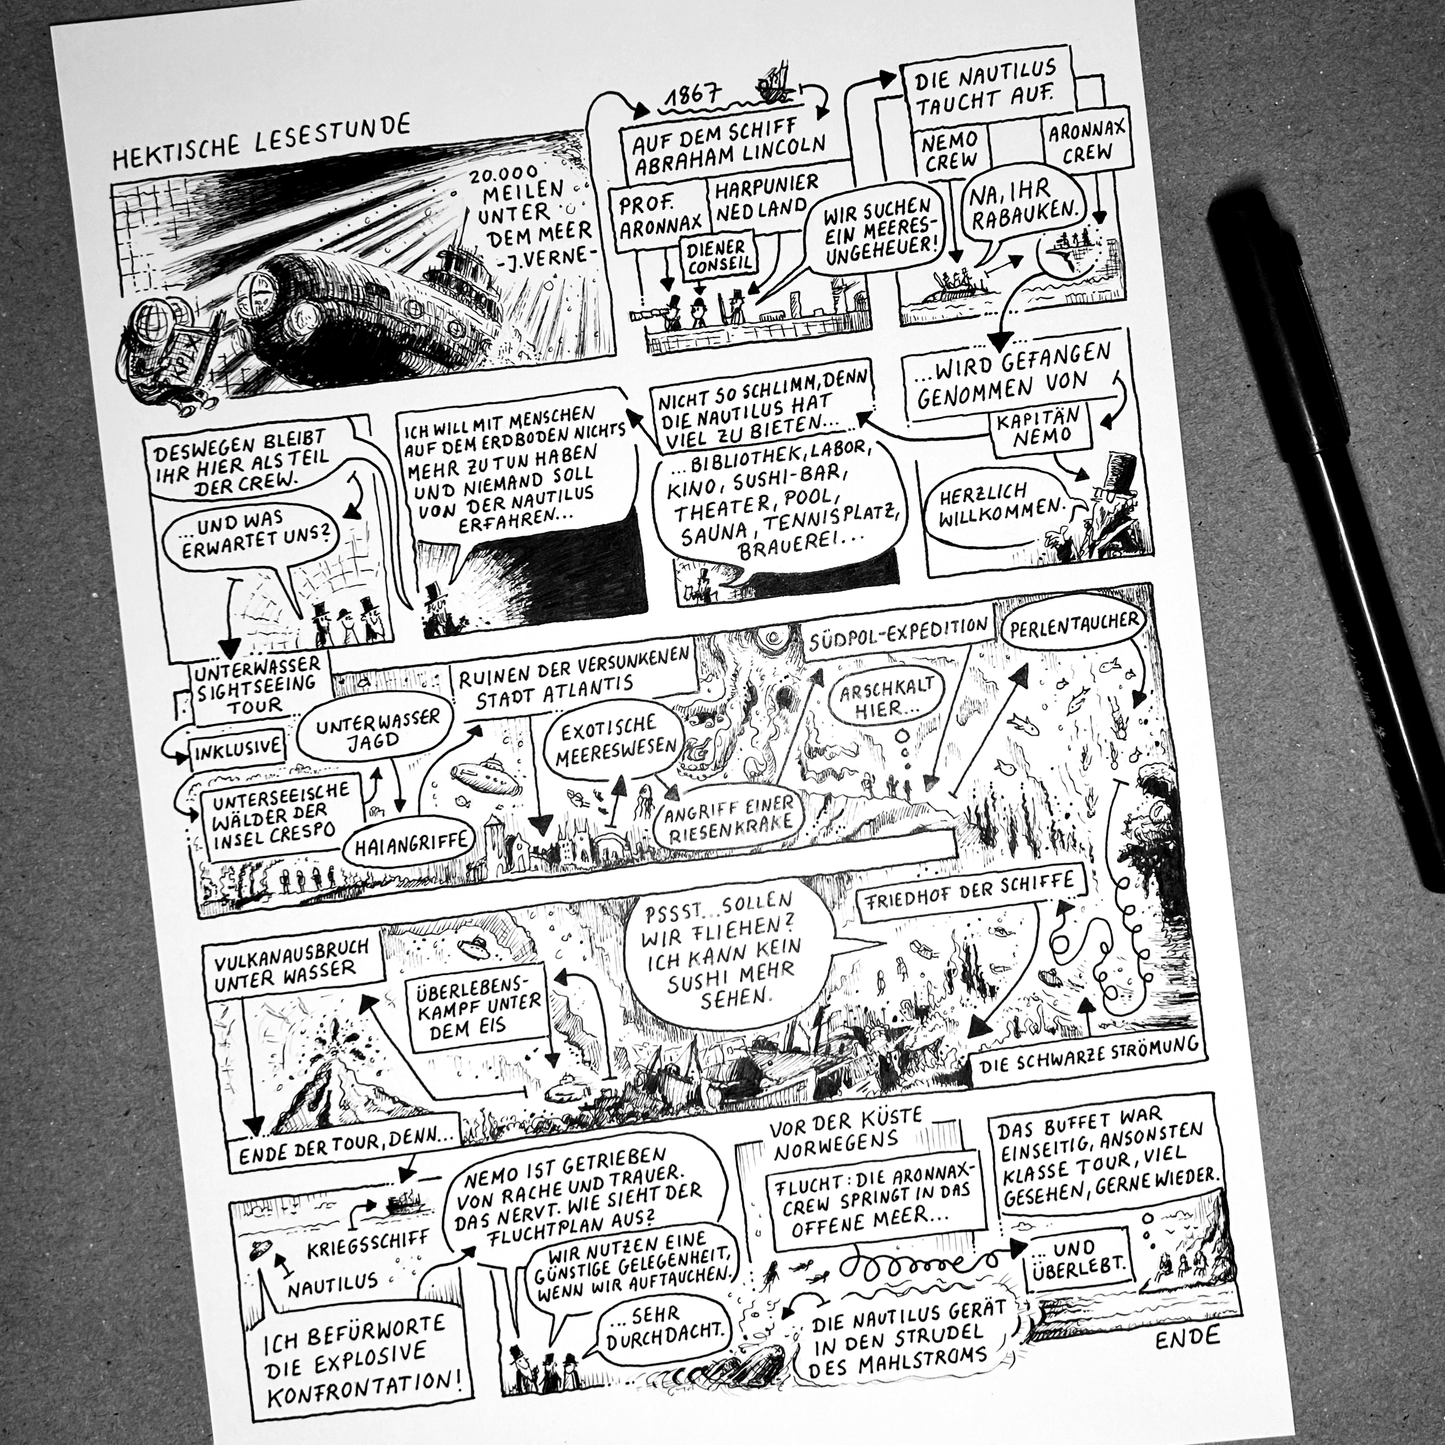 HEKTISCHE LESESTUNDE
20.000
MEILEN
UNTER
DEM MEER
-J.VERNE-
1867
AUF DEM SCHIFF
ABRAHAM LINCOLN
PROF.
ARONNAX
HARPUNIER
NED LAND
DIENER
CONSEIL
WIR SUCHEN
EIN MEERES-
UNGEHEUER!
DIE NAUTILUS
TAUCHT AUF.
NEMO
CREW
ARONNAX
CREW
NA, IHR
RABAUKEN.
...WIRD GEFANGEN
GENOMMEN VON
KAPITÄN
NEMO
HERZLICH
WILLKOMMEN.
NICHT SO SCHLIMM, DENN
DIE NAUTILUS HAT
VIEL ZU BIETEN...
...BIBLIOTHEK, LABOR,
KINO, SUSHI-BAR,
THEATER, POOL,
SAUNA, TENNISPLATZ,
BRAUEREI...
ICH WILL MIT MENSCHEN
AUF DEM ERDBODEN NICHTS
MEHR ZU TUN HABEN
UND NIEMAND SOLL
VON DER NAUTILUS
ERFAHREN...
DESWEGEN BLEIBT
IHR HIER ALS TEIL
DER CREW.
...UND WAS
ERWARTET UNS?
UNTERWASSER
SIGHTSEEING
TOUR
INKLUSIVE
UNTERSEEISCHE
WÄLDER DER
INSEL CRESPO
UNTERWASSER
JAGD
HAIANGRIFFE
RUINEN DER VERSUNKENEN
STADT ATLANTIS
EXOTISCHE
MEERESWESEN
ANGRIFF EINER
RIESENKRAKE
SÜDPOL-EXPEDITION
ARSCHKALT
HIER...
PERLENTAUCHER
DIE SCHWARZE STRÖMUNG
FRIEDHOF DER SCHIFFE
PSSST...SOLLEN
WIR FLIEHEN?
ICH KANN KEIN
SUSHI MEHR
SEHEN.
ÜBERLEBENS-
KAMPF UNTER
DEM EIS
VULKANAUSBRUCH
UNTER WASSER
ENDE DER TOUR, DENN...
KRIEGSSCHIFF
NAUTILUS
ICH BEFÜRWORTE
DIE EXPLOSIVE
KONFRONTATION!
NEMO IST GETRIEBEN
VON RACHE UND TRAUER.
DAS NERVT. WIE SIEHT DER
FLUCHTPLAN AUS?
WIR NUTZEN EINE
GÜNSTIGE GELEGENHEIT,
WENN WIR AUFTAUCHEN.
...SEHR
DURCHDACHT.
VOR DER KÜSTE
NORWEGENS
FLUCHT: DIE ARONNAX-
CREW SPRINGT IN DAS
OFFENE MEER...
DIE NAUTILUS GERÄT
IN DEN STRUDEL
DES MAHLSTROMS
...UND
ÜBERLEBT.
DAS BUFFET WAR
EINSEITIG, ANSONSTEN
KLASSE TOUR, VIEL
GESEHEN, GERNE WIEDER.
ENDE